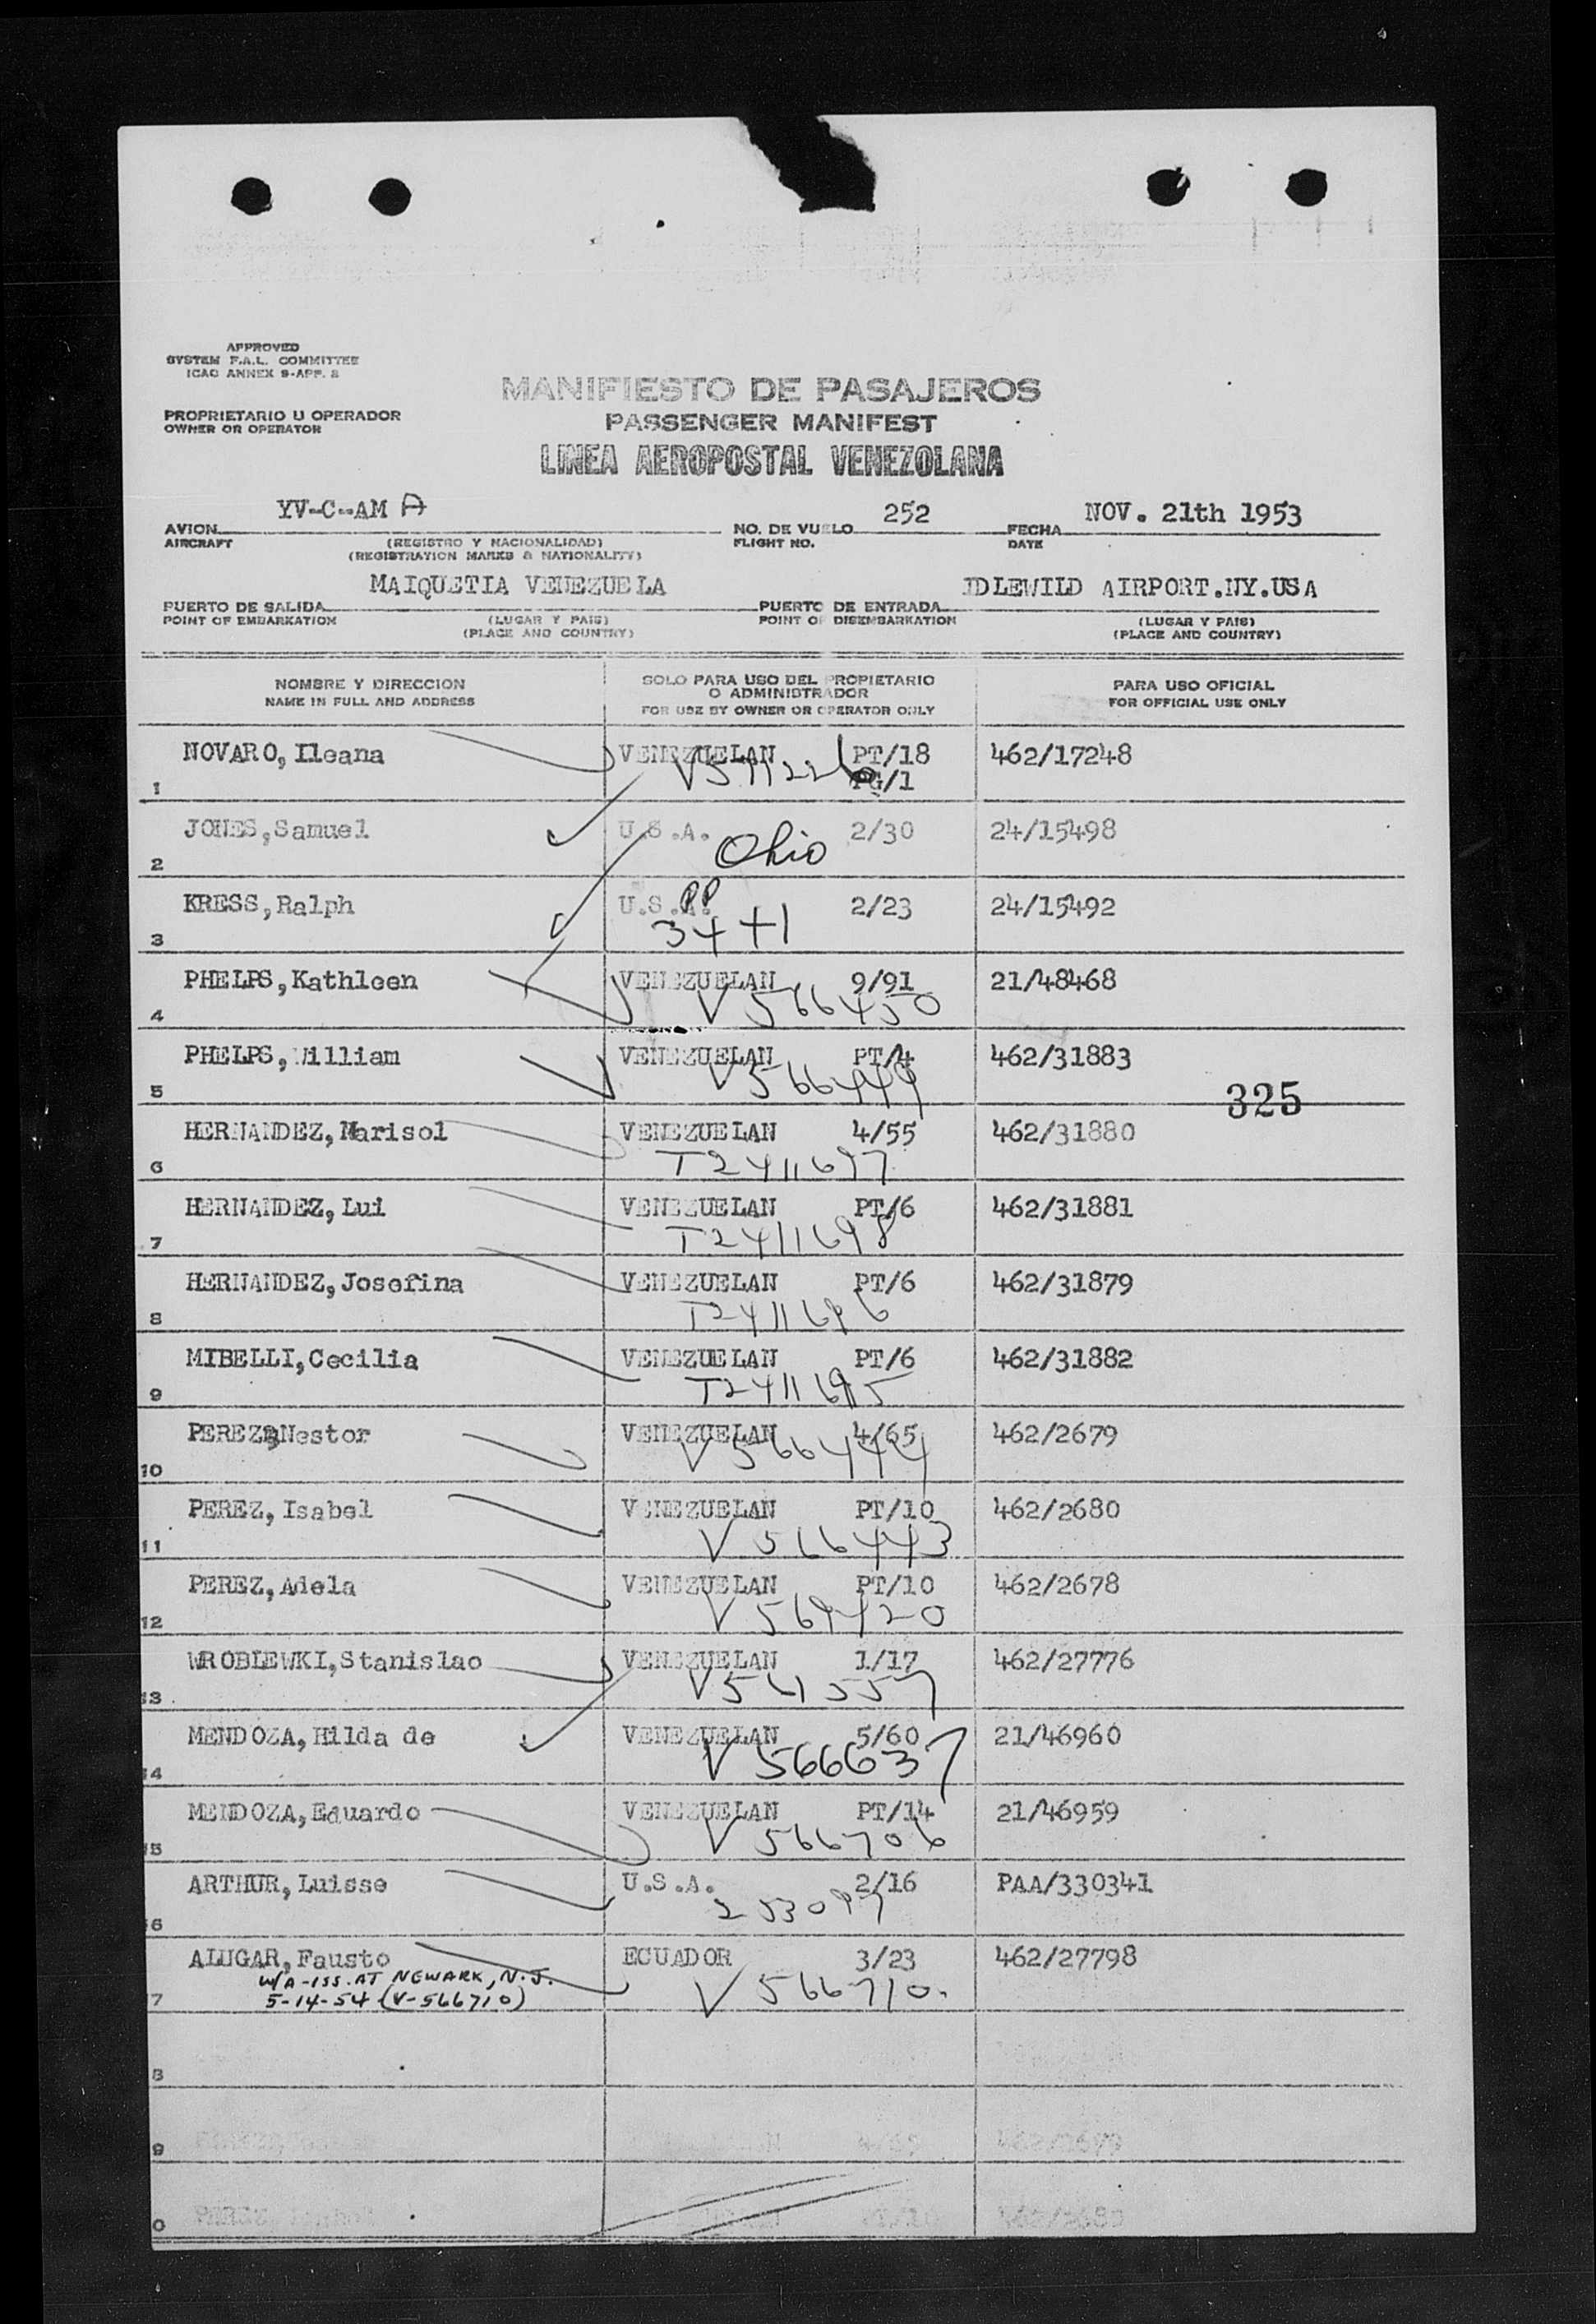 APPROVED
SYSTEM F.A.L. COMMITTEE
ICAO ANNEX 9-APP. 2
MANIFIESTO DE PASAJEROS
PROPRIETARIO U OPERADOR
OWNER OR OPERATOR
PASSENGER MANIFEST
LINEA AEROPOSTAL VENEZOLANA
YV-C-AM A 252 NOV. 21th 1953
AVION NO. DE VUELO FECHA
AIRCRAFT (REGISTRO Y NACIONALIDAD) FLIGHT NO. DATE
(REGISTRATION MARKS & NATIONALITY)
MAIQUETIA VENEZUELA IDLEWILD AIRPORT.NY.USA
PUERTO DE SALIDA PUERTO DE ENTRADA
POINT OF EMBARKATION (LUGAR Y PAIS) POINT OF DISEMBARKATION (LUGAR Y PAIS)
(PLACE AND COUNTRY) (PLACE AND COUNTRY)
NOMBRE Y DIRECCION SOLO PARA USO DEL PROPIETARIO PARA USO OFICIAL
O ADMINISTRADOR
NAME IN FULL AND ADDRESS FOR USE BY OWNER OR OPERATOR ONLY FOR OFFICIAL USE ONLY
NOVARO, Ileana VENEZUELAN PT/18 462/17248
1 PG/1
JONES, Samuel U.S.A. 2/30 24/15498
2 Ohio
KRESS, Ralph U.S.A. PP 2/23 24/15492
3 34+1
PHELPS, Kathleen VENEZUELAN 9/91 21/48468
4 V 566450
PHELPS, William VENEZUELAN PT/4 462/31883
5 V 566449
325
HERNANDEZ, Marisol VENEZUELAN 4/55 462/31880
6 T2411697
HERNANDEZ, Lui VENEZUELAN PT/6 462/31881
7 T2411698
HERNANDEZ, Josefina VENEZUELAN PT/6 462/31879
8 T2411696
MIBELLI, Cecilia VENEZUELAN PT/6 462/31882
9 T2411695
PEREZ, Nestor VENEZUELAN 4/65 462/2679
10 V 566444
PEREZ, Isabel VENEZUELAN PT/10 462/2680
11 V 566443
PEREZ, Adela VENEZUELAN PT/10 462/2678
12 V 569420
WROBLEWKI, Stanislao VENEZUELAN 1/17 462/27776
13 V561557
MENDOZA, Hilda de VENEZUELAN 5/60 21/46960
14 V 566637
MENDOZA, Eduardo VENEZUELAN PT/14 21/46959
15 V 566706
ARTHUR, Luisse U.S.A. 2/16 PAA/330341
6 253097
ALUGAR, Fausto ECUADOR 3/23 462/27798
W/A-ISS. AT NEWARK, N.J.
7 5-14-54 (V-566710) V 566710.
8
9
0